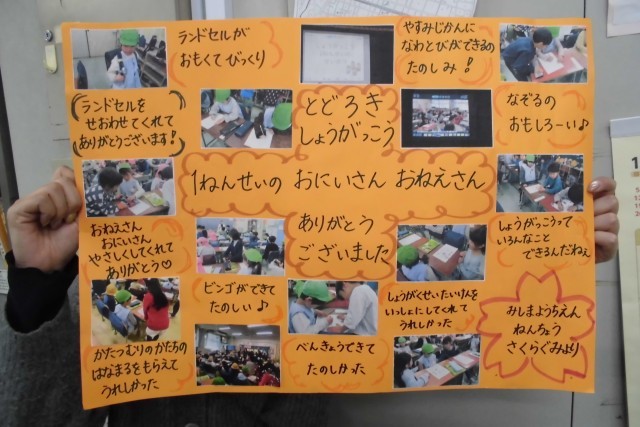 ランドセルが
おもくてびっくり
やすみじかんに
なわとびができるの
たのしみ！
ランドセルを
せおわせてくれて
ありがとうございます！
とどろき
しょうがっこう
なぞるの
おもしろーい♪
1ねんせいの おにいさん おねえさん
ありがとう
ございました
おねえさん
おにいさん
やさしくしてくれて
ありがとう♡
しょうがっこうって
いろんなこと
できるんだねぇ
ビンゴができて
たのしい♪
しょうがくせいたいけんを
いっしょにしてくれて
うれしかった
かたつむりのかたちの
はなまるをもらえて
うれしかった
べんきょうできて
たのしかった
みしまようちえん
ねんちょう
さくらぐみより